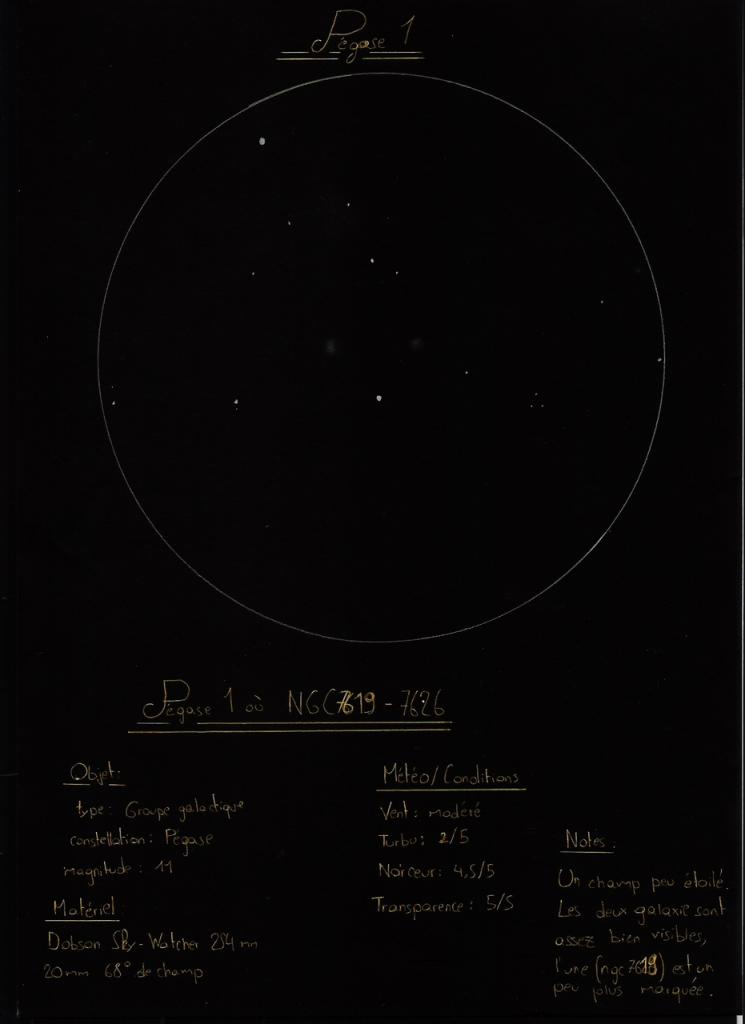 Pégase 1
Pégase 1 où NGC7619-7626
Objet:
type: Groupe galactique
constellation: Pégase
magnitude: 11
Matériel
Dobson Sky-Watcher 254 mm
20mm 68° de champ
Météo/Conditions
Vent: modéré
Turbu: 2/5
Noirceur: 4,5/5
Transparence: 5/5
Notes:
Un champ peu étoilé.
Les deux galaxie sont
assez bien visibles,
l'une (ngc7619) est un
peu plus marquée.